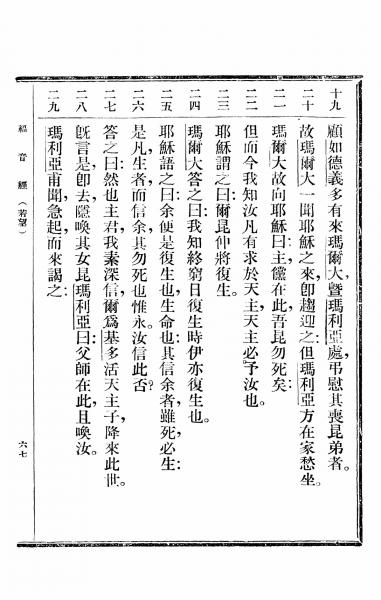 十九 顧如德義多有來瑪爾大，曁瑪利亞處，弔慰其喪昆弟者。
二十 故瑪爾大一聞耶穌之來，卽趨迎之：但瑪利亞方在家愁坐。
二一 瑪爾大故向耶穌曰：主儻在此，吾昆勿死矣：
二二 但而今我知汝凡有求於天主，天主必予汝也。
二三 耶穌謂之曰：爾昆仲將復生。
二四 瑪爾大答之曰：我知終窮日復生時伊亦復生也。
二五 耶穌語之曰：余便是復生也，生命也：其信余者，雖死必生：
二六 是凡生者而信余，其勿死也惟永。汝信此否？
二七 答之曰：然也主君，我素深信，爾爲基多活天主子，降來此世。
二八 旣言是，卽去，隱喚其女昆瑪利亞曰：父師在此，且喚汝。
二九 瑪利亞甫聞，急起，而來謁之：
福音經（若望）
六七